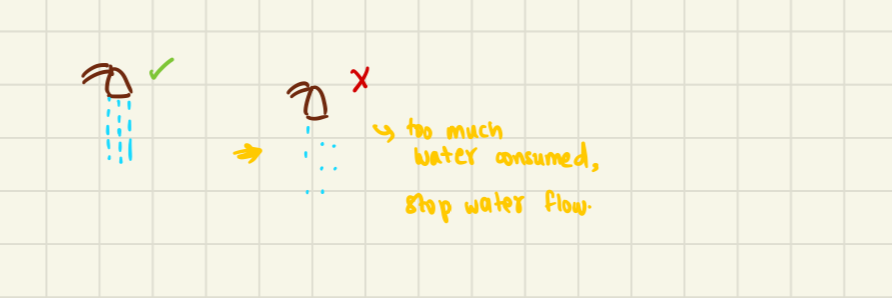 too much
water consumed,
stop water flow.